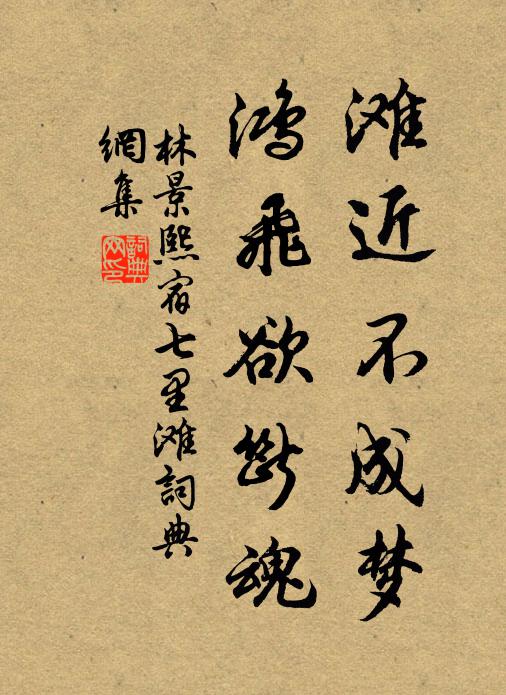 滩近不成梦
鸿飞欲断魂
林景熙宿七里滩詞典
網集
詞典网印